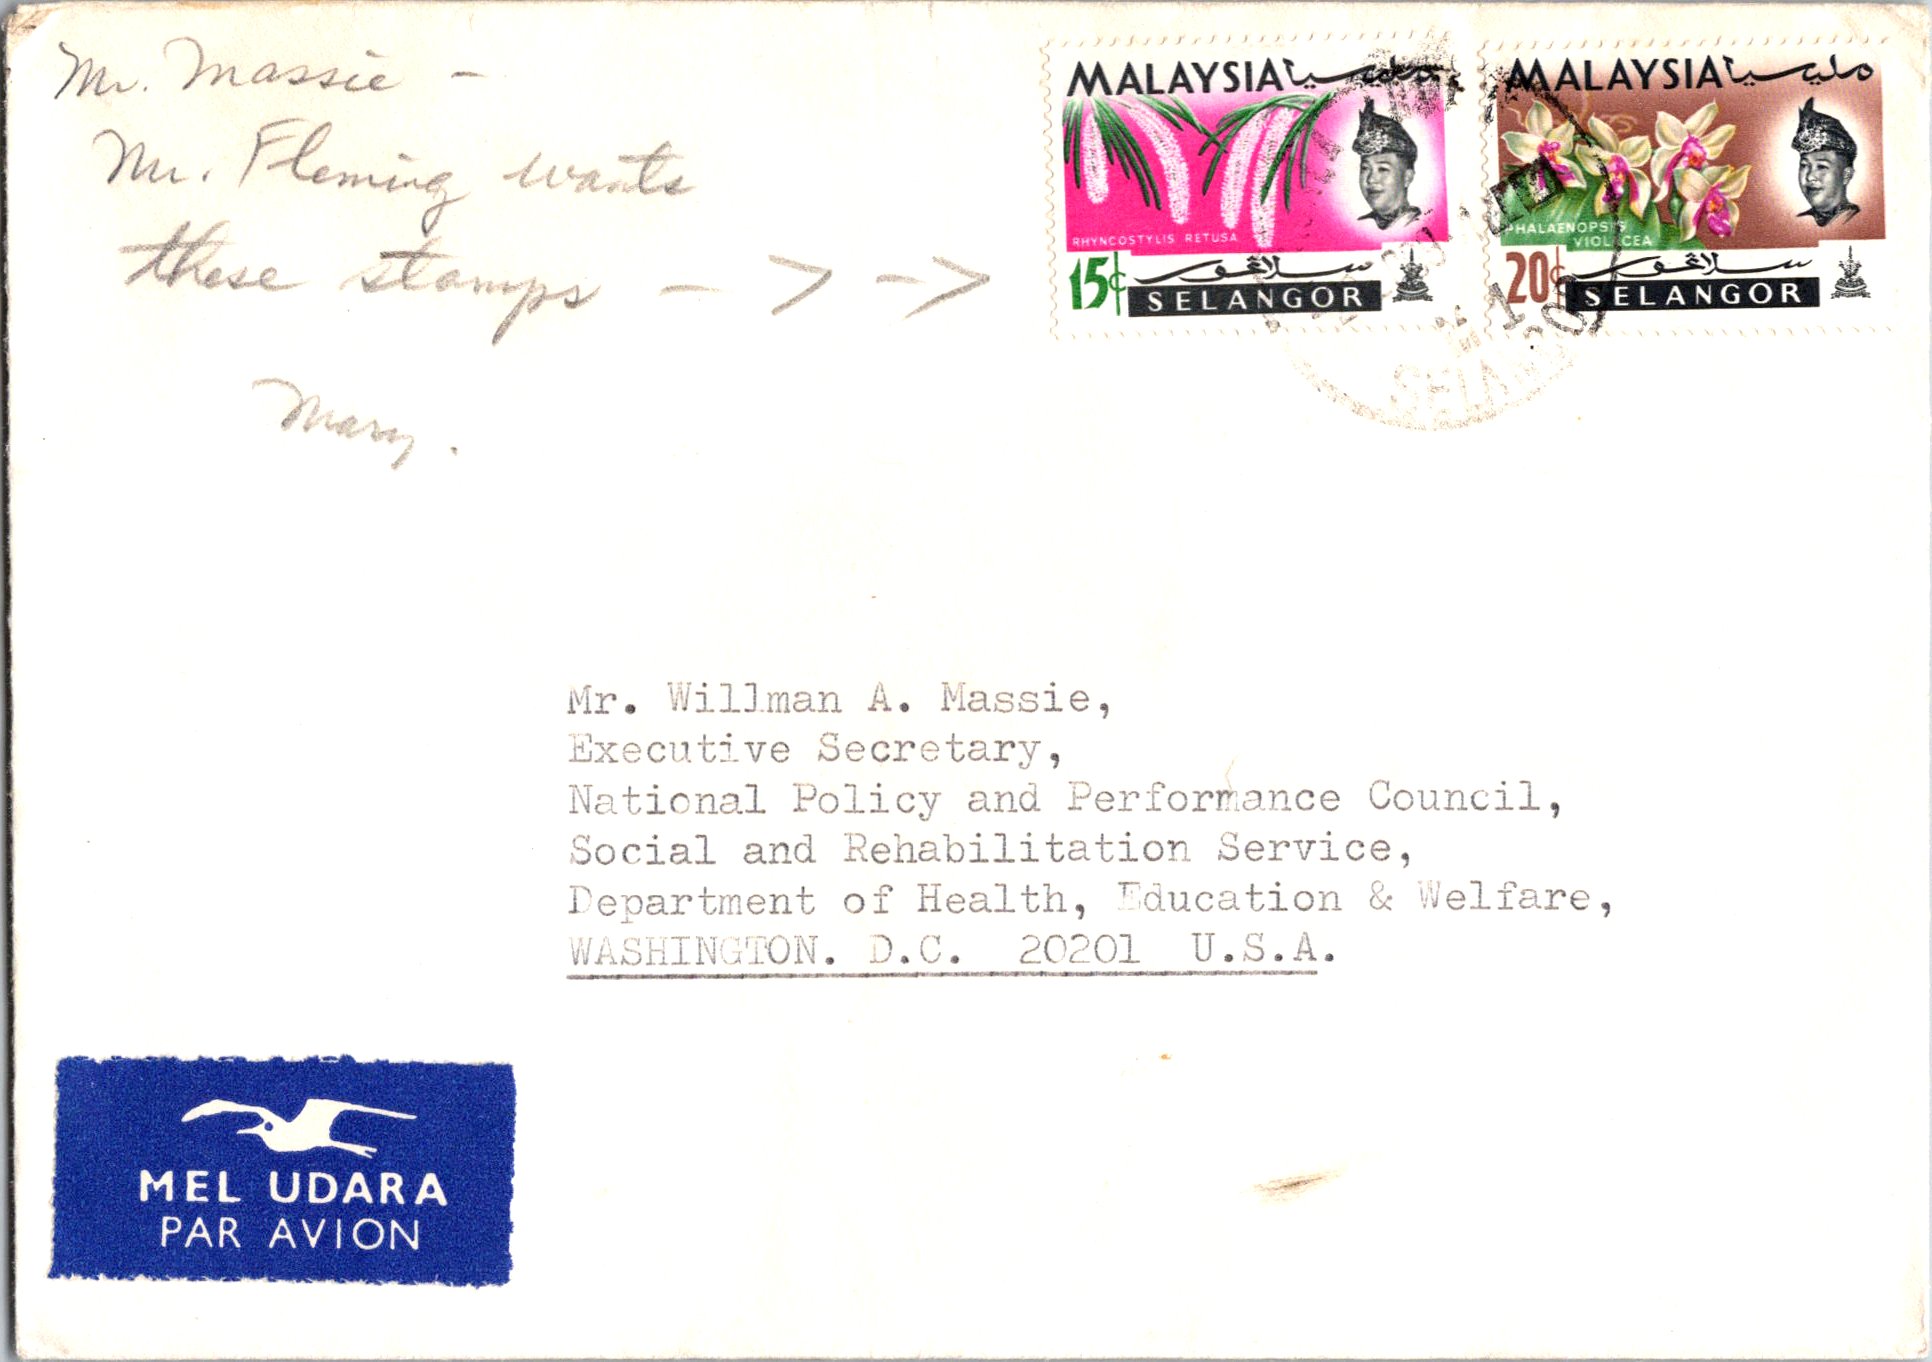 Mr. Massie -
Mr. Fleming wants
these stamps - > ->
Mary.
MALAYSIA مليسيا
RHYNCOSTYLIS RETUSA
15¢
سلاڠور
SELANGOR
MALAYSIA مليسيا
PHALAENOPSIS
VIOLACEA
20¢
سلاڠور
SELANGOR
SELANGOR
Mr. Willman A. Massie,
Executive Secretary,
National Policy and Performance Council,
Social and Rehabilitation Service,
Department of Health, Education & Welfare,
WASHINGTON. D.C. 20201 U.S.A.
MEL UDARA
PAR AVION